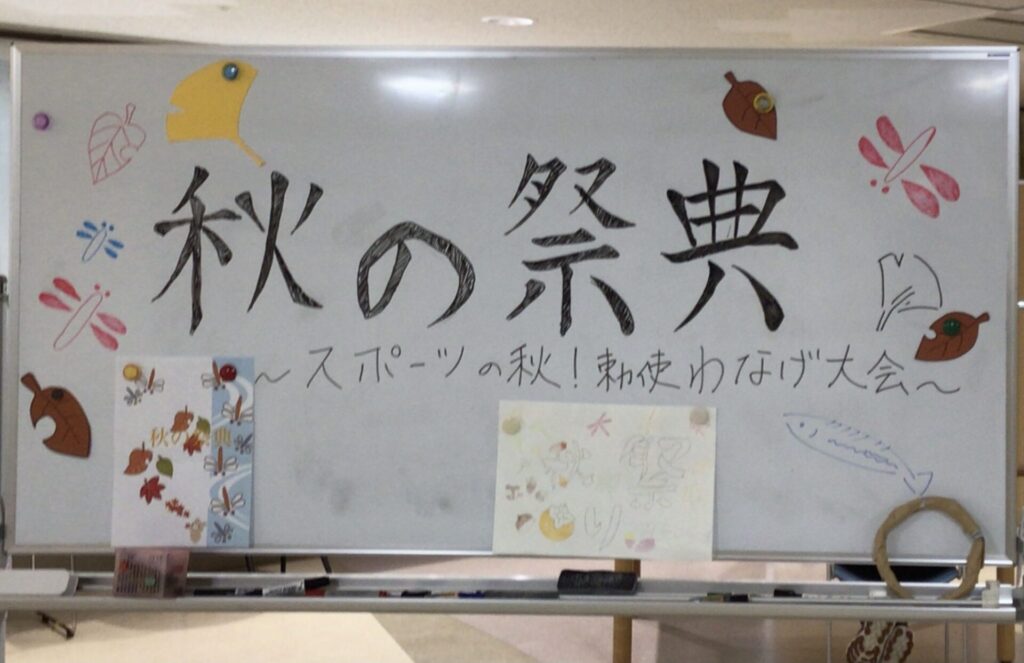 秋の祭典
～スポーツの秋！勅使わなげ大会～
秋の祭典
秋祭り